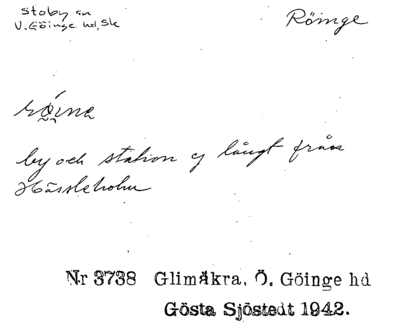 Stoby sn Röinge
V. Göinge hd, Sk
by och station ej långt från
Hässleholm
Nr 3738 Glimåkra, Ö. Göinge hd
Gösta Sjöstedt 1942.